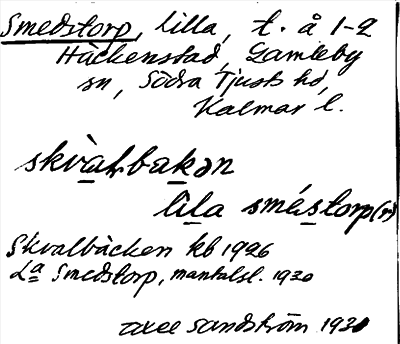 Smedstorp, lilla, t. å 1-2
Häckenstad, Gamleby
sn, Södra Tjusts hd,
Kalmar l.
skvàlbakən
lila smésto̱rp(r)
Skvalbäcken kb 1926
La Smedstorp, mantalsl. 1930
Axel Sandström 1930